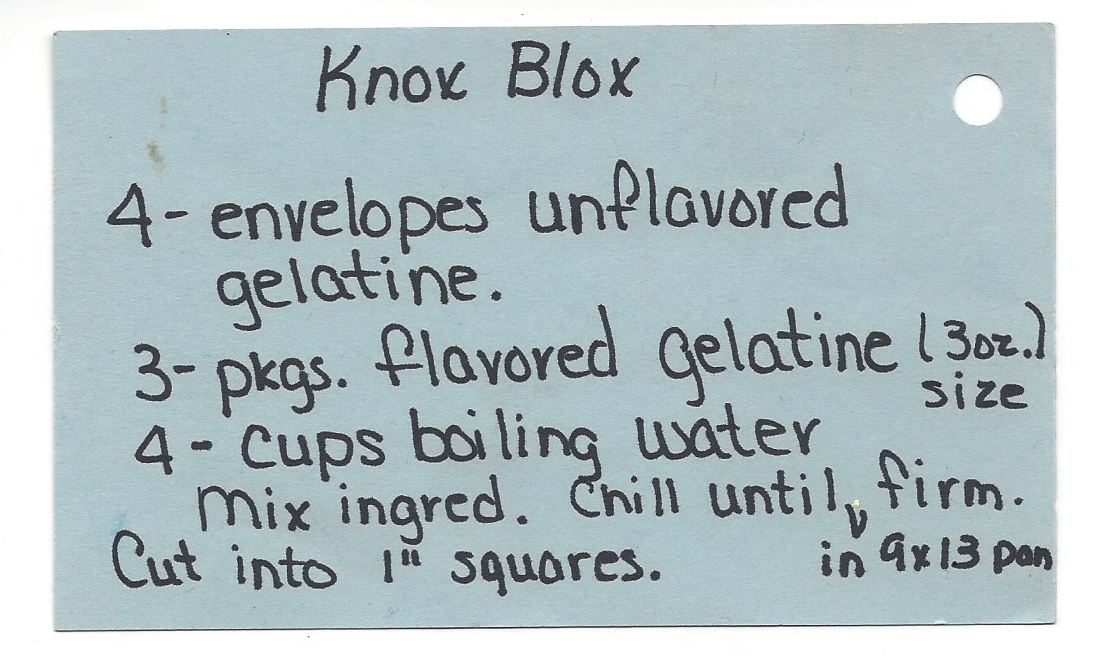 Knox Blox
4- envelopes unflavored
gelatine.
3- pkgs. flavored gelatine (3oz.)
size
4- cups boiling water
Mix ingred. Chill until firm.
in 9x13 pan
Cut into 1" squares.